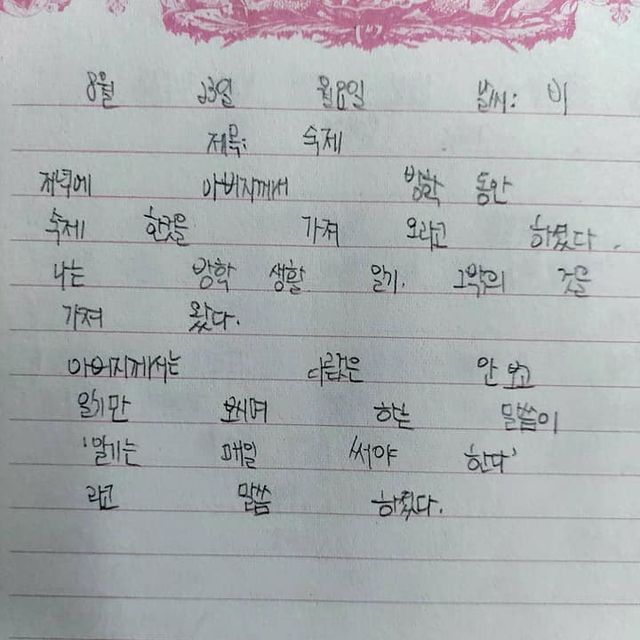 8월 23일 월요일 날씨: 비
제목: 숙제
저녁에 아버지께서 방학 동안
숙제 한것을 가져 오라고 하셨다.
나는 방학 생활 일기. 그밖의 것을
가져 왔다.
아버지께서는 다른것은 안 보고
일기만 보시며 하는 말씀이
'일기는 매일 써야 한다'
라고 말씀 하셨다.